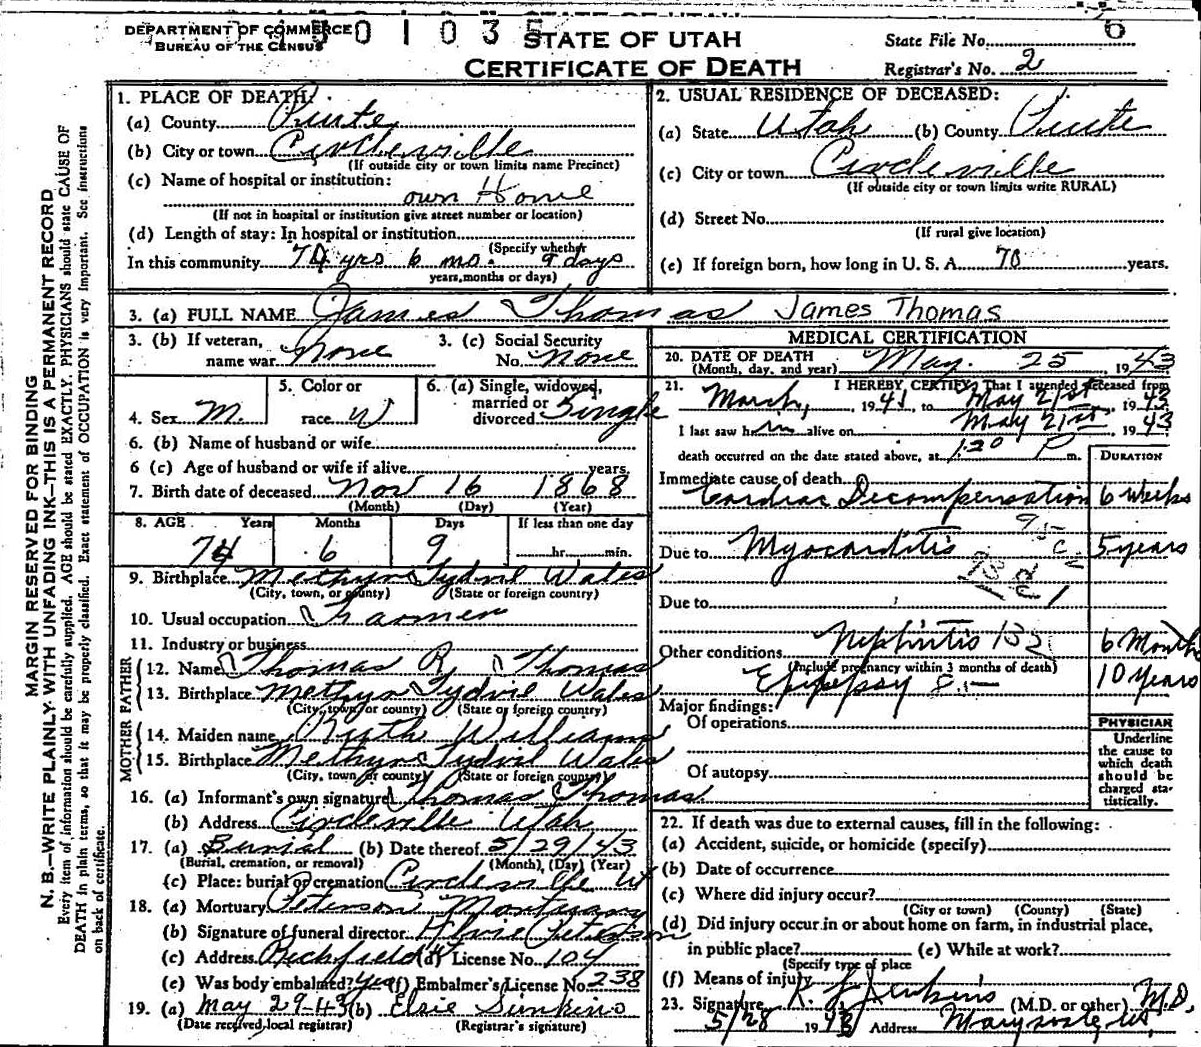 DEPARTMENT OF COMMERCE
BUREAU OF THE CENSUS
STATE OF UTAH
CERTIFICATE OF DEATH
State File No. 6
Registrar's No. 2
MARGIN RESERVED FOR BINDING
N. B.—WRITE PLAINLY WITH UNFADING INK—THIS IS A PERMANENT RECORD
Every item of information should be carefully supplied. AGE should be stated EXACTLY. PHYSICIANS should state CAUSE OF
DEATH in plain terms, so that it may be properly classified. Exact statement of OCCUPATION is very important. See instructions
on back of certificate.
1. PLACE OF DEATH:
(a) County Piute
(b) City or town Circleville
(If outside city or town limits name Precinct)
(c) Name of hospital or institution:
own Home
(If not in hospital or institution give street number or location)
(d) Length of stay: In hospital or institution
(Specify whether
In this community 74 yrs 6 mo. 9 days
years, months or days)
2. USUAL RESIDENCE OF DECEASED:
(a) State Utah (b) County Piute
(c) City or town Circleville
(If outside city or town limits write RURAL)
(d) Street No.
(If rural give location)
(e) If foreign born, how long in U. S. A. 70 years.
3. (a) FULL NAME James Thomas James Thomas
3. (b) If veteran,
name war None
3. (c) Social Security
No. None
4. Sex M.
5. Color or
race W
6. (a) Single, widowed,
married or
divorced Single
6. (b) Name of husband or wife
6 (c) Age of husband or wife if alive years.
7. Birth date of deceased Nov 16 1868
(Month) (Day) (Year)
8. AGE Years Months Days If less than one day
74 6 9 hr. min.
9. Birthplace Methyr Tydvil Wales
(City, town, or county) (State or foreign country)
10. Usual occupation Farmer
11. Industry or business
FATHER
12. Name Thomas R. Thomas
13. Birthplace Methyr Tydvil Wales
(City, town or county) (State or foreign country)
MOTHER
14. Maiden name Ruth Williams
15. Birthplace Methyr Tydvil Wales
(City, town or county) (State or foreign country)
16. (a) Informant's own signature Thomas Thomas
(b) Address Circleville Utah
17. (a) Burial (b) Date thereof 5/29/43
(Burial, cremation, or removal) (Month), (Day) (Year)
(c) Place: burial or cremation Circleville Ut
18. (a) Mortuary Peterson Mortuary
(b) Signature of funeral director Peterson
(c) Address Richfield (d) License No. 104
(e) Was body embalmed? yes (f) Embalmer's License No. 238
19. (a) May 29-43 (b) Elsie Simkins
(Date received local registrar) (Registrar's signature)
MEDICAL CERTIFICATION
20. DATE OF DEATH
(Month, day, and year) May. 25, 1943
21. I HEREBY CERTIFY, That I attended deceased from
March, 1941, to May 21st, 1943
I last saw him alive on May 21st, 1943
death occurred on the date stated above, at 1:20 P m.
DURATION
Immediate cause of death
Cardiac Decompensation 6 weeks
Due to Myocarditis 5 years
Due to
Other conditions Nephritis 132 6 Months
(Include pregnancy within 3 months of death)
Epilepsy 85 10 Years
Major findings:
Of operations
Of autopsy
PHYSICIAN
Underline
the cause to
which death
should be
charged sta-
tistically.
22. If death was due to external causes, fill in the following:
(a) Accident, suicide, or homicide (specify)
(b) Date of occurrence
(c) Where did injury occur?
(City or town) (County) (State)
(d) Did injury occur in or about home on farm, in industrial place,
in public place? (e) While at work?
(Specify type of place
(f) Means of injury
23. Signature R. J. Jenkins (M.D. or other) M.D.
5/28 1943 Address Marysvale, Ut.